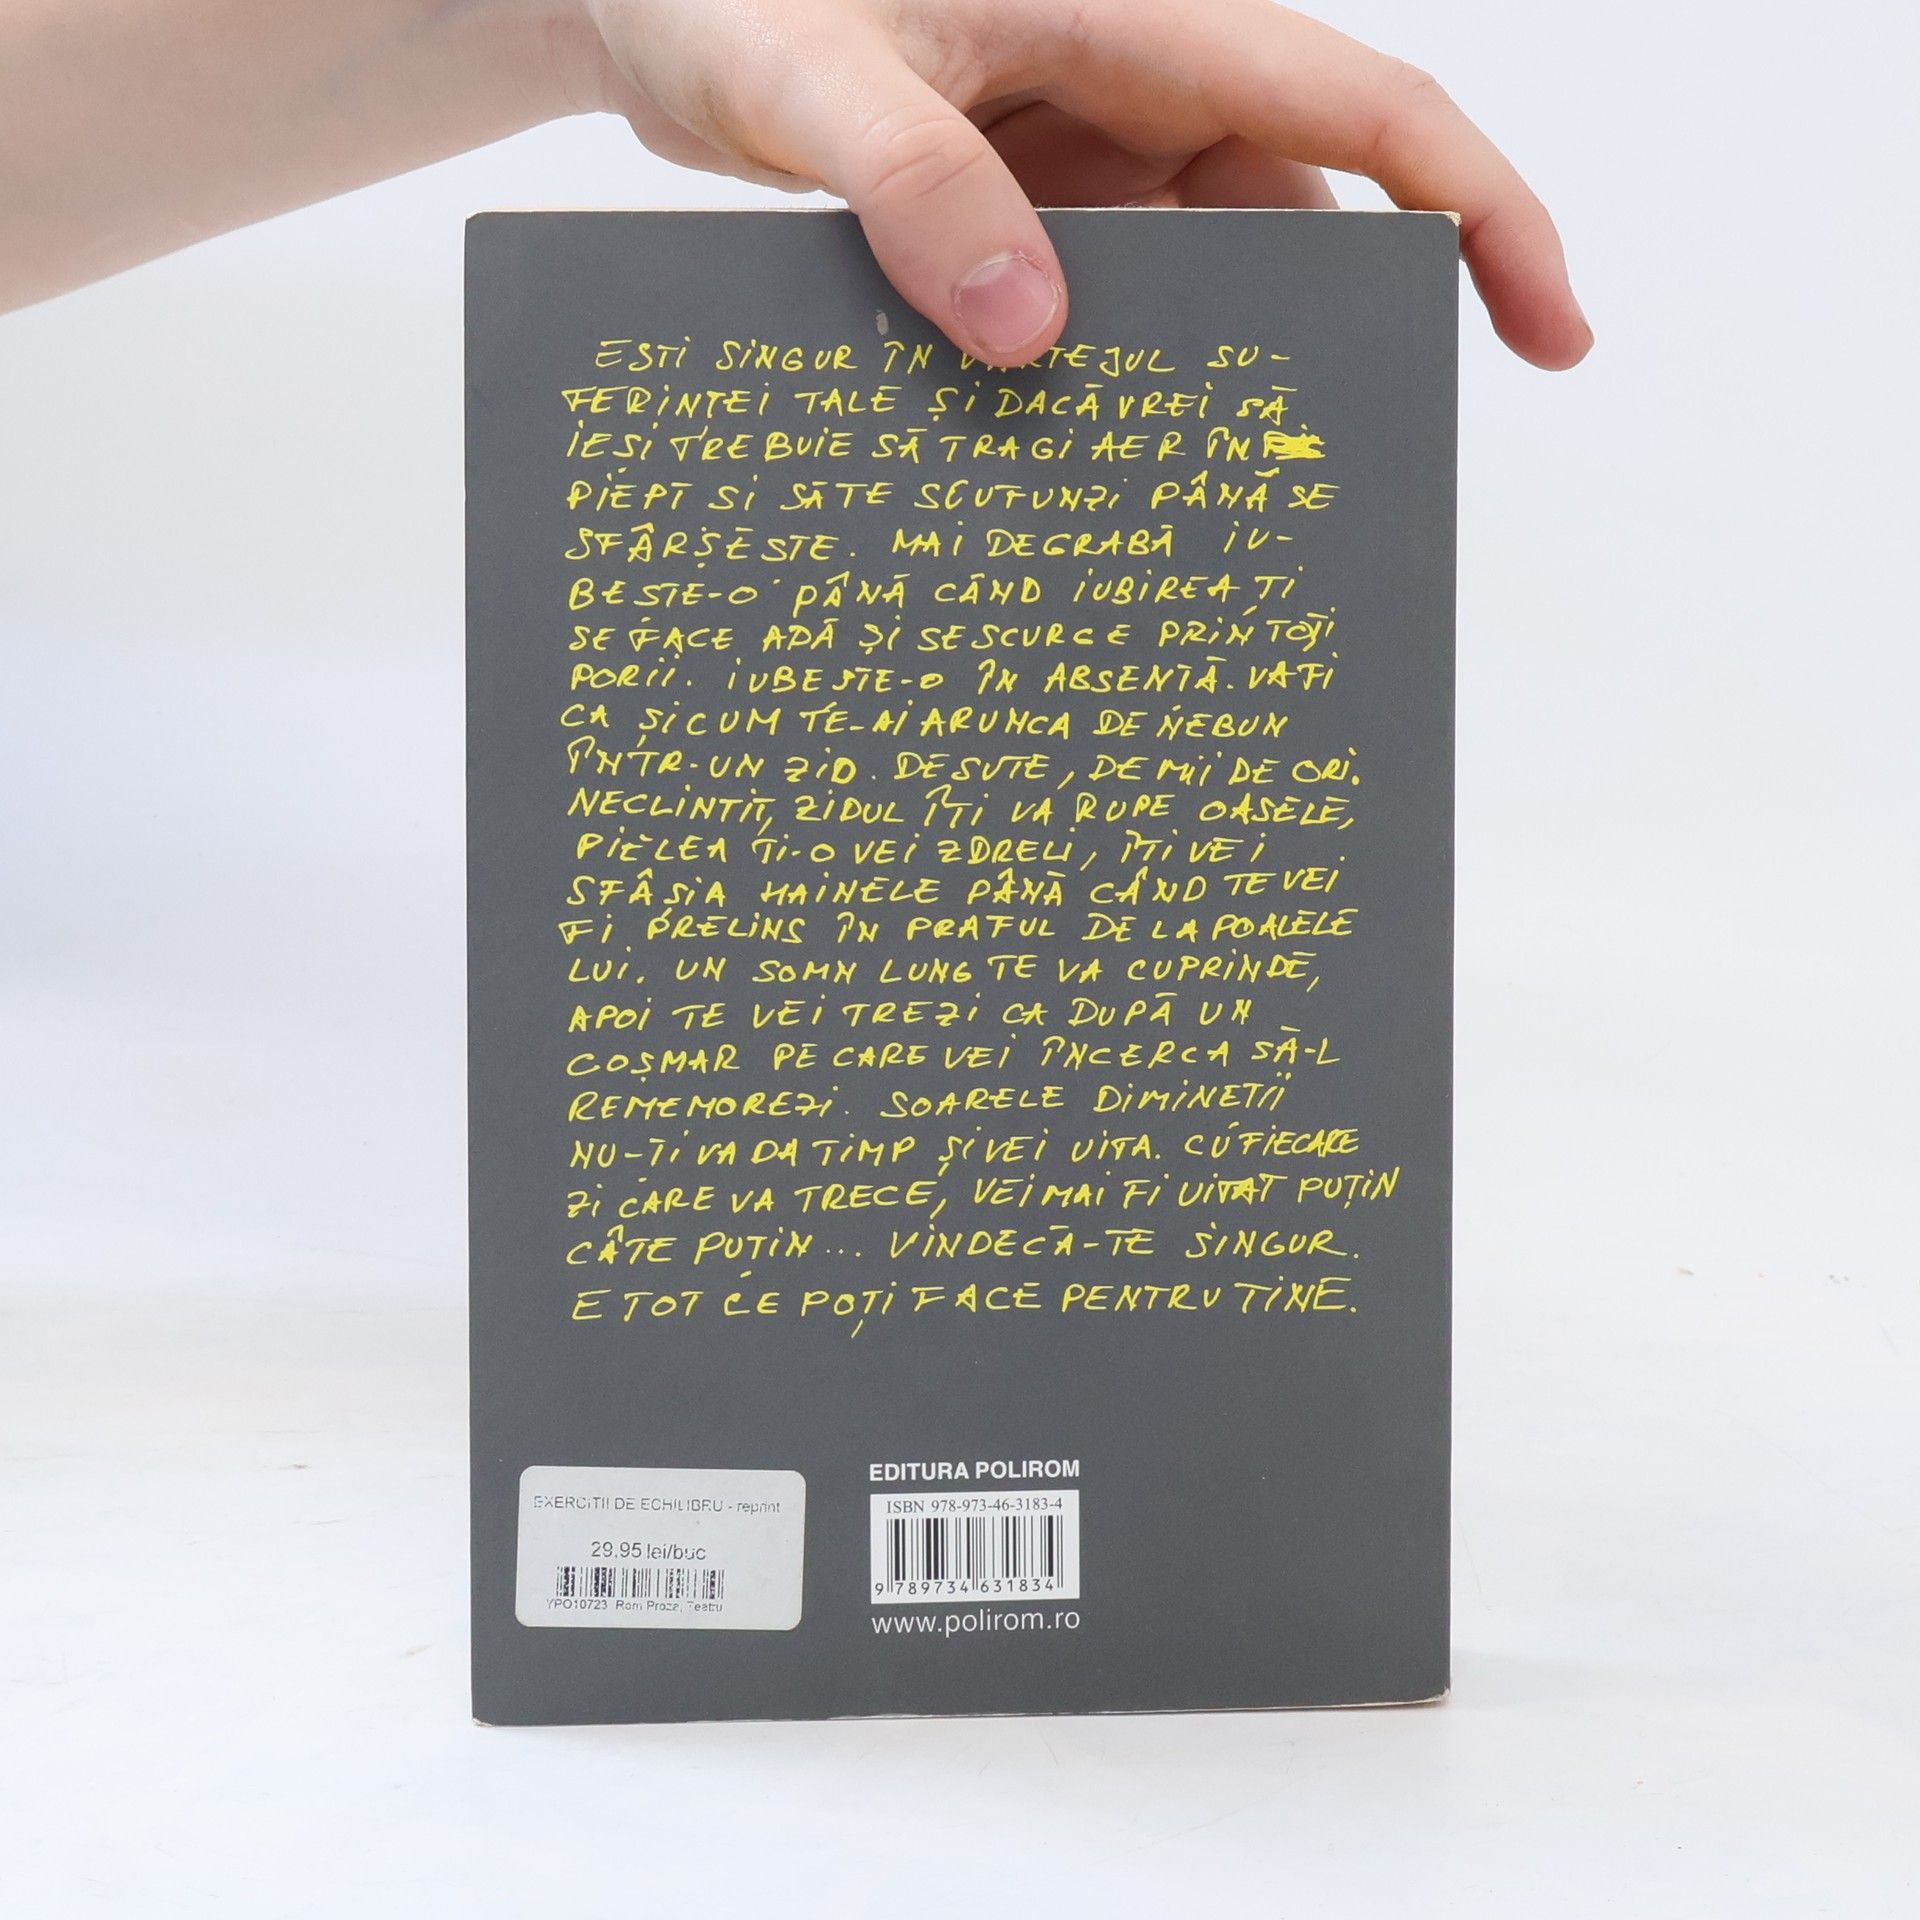 EȘTI SINGUR ÎN VÂRTEJUL SU-
FERINȚEI TALE ȘI DACĂ VREI SĂ
IEȘI TREBUIE SĂ TRAGI AER ÎN
PIEPT SI SĂ TE SCUFUNZI PÂNĂ SE
SFÂRȘEȘTE. MAI DEGRABĂ IU-
BEȘTE-O PÂNĂ CÂND IUBIREA ȚI
SE FACE APĂ ȘI SE SCURGE PRIN TOȚI
PORII. IUBEȘTE-O ÎN ABSENȚĂ. VA FI
CA ȘI CUM TE-AI ARUNCA DE NEBUN
ÎNTR-UN ZID. DE SUTE, DE MII DE ORI.
NECLINTIT, ZIDUL ÎȚI VA RUPE OASELE,
PIELEA ȚI-O VEI ZDRELI, ÎȚI VEI
SFÂȘIA HAINELE PÂNĂ CÂND TE VEI
FI PRELINS ÎN PRAFUL DE LA POALELE
LUI. UN SOMN LUNG TE VA CUPRINDE,
APOI TE VEI TREZI CA DUPĂ UN
COȘMAR PE CARE VEI ÎNCERCA SĂ-L
REMEMOREZI. SOARELE DIMINEȚII
NU-ȚI VA DA TIMP ȘI VEI UITA. CU FIECARE
ZI CARE VA TRECE, VEI MAI FI UITAT PUȚIN
CÂTE PUȚIN... VINDECĂ-TE SINGUR.
E TOT CE POȚI FACE PENTRU TINE.
EXERCITII DE ECHILIBRU - reprint
29,95 lei/buc
YPO10723 Rom Proza, Teatru
EDITURA POLIROM
ISBN 978-973-46-3183-4
9 789734 631834
www.polirom.ro